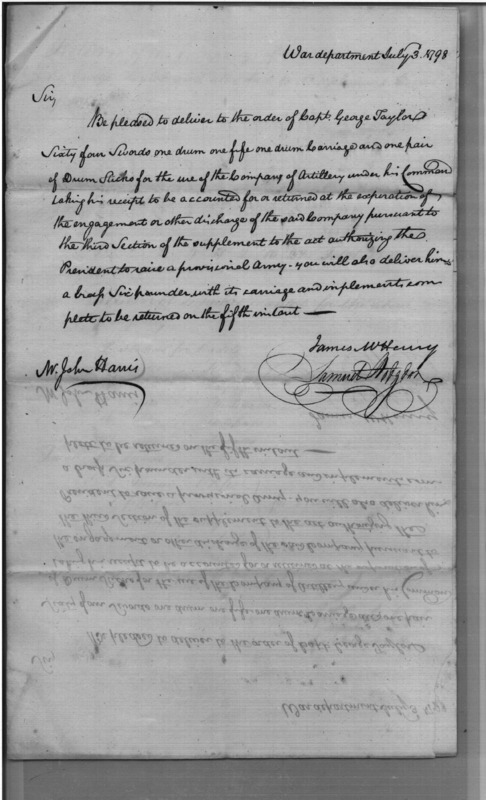 War department July 3. 1798
Sir,
Be pleased to deliver to the order of Capt. George Taylor
Sixty four Swords one drum one fife one drum Carriage and one pair
of Drum Sticks for the use of the Company of Artillery under his Command
taking his receipt to be accounted for or returned at the experation of
the engagement or other discharge of the said Company pursuant to
the third Section of the supplement to the act authorizing the
President to raise a provisional Army - you will also deliver him
a brass Six pounder, with its carriage and implements com
plete to be returned on the fifth instant —
James McHenry
Mr. John Harris
Samuel Hodgdon